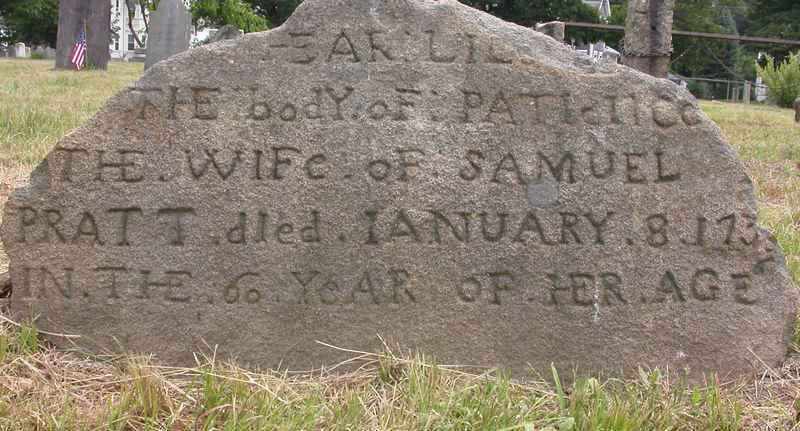 HEAR LIES
THE bodY.of PATIeNCe
THE.WIFe.oF SAMUEL
PRATT.dIed.IANUARY.8.173
IN.THE.60.YeAR OF.HER.AGE